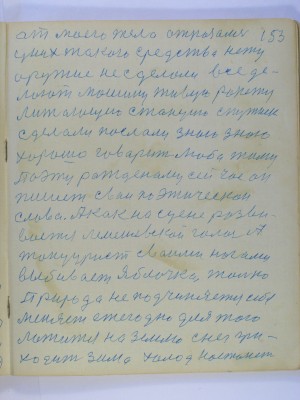 от моего тело отрозами 153
у них такого средства нету
оружие не сделоли все де-
лоют машину живую ракету
литающую станцию спутник
сделали послали знаю знаю
хорошо говорит Люба
Поэту рожденому сейчас он
пишет свои поэтической
слова. А как на сцене розви-
воется Лемешевской голос А
танцурист своими ногами
выбивает Яблочка, только
Природа не подчиняету себя
меняет ежегодно для того
ложится на Землю снег при-
ходит зима холод настоит